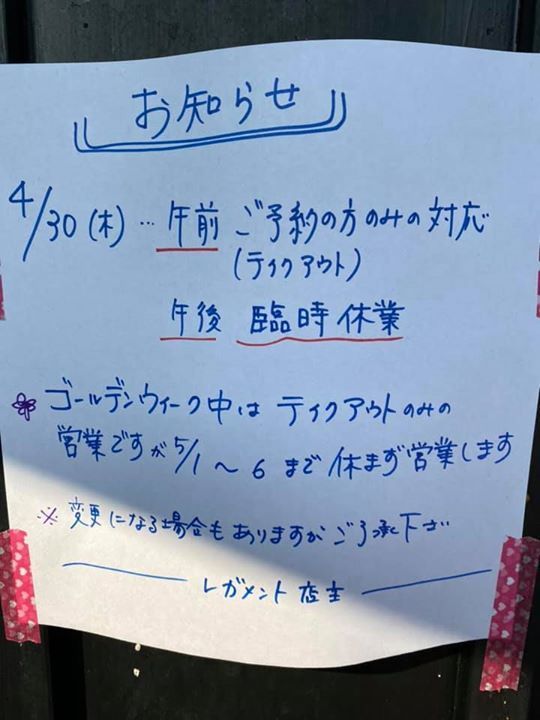 お知らせ
4/30(木)…午前 ご予約の方のみの対応
(テイクアウト)
午後 臨時休業
ゴールデンウィーク中は テイクアウトのみの
営業ですが 5/1～6 まで 休まず営業します
※ 変更になる場合もありますが ご了承下さい
レガメント 店主